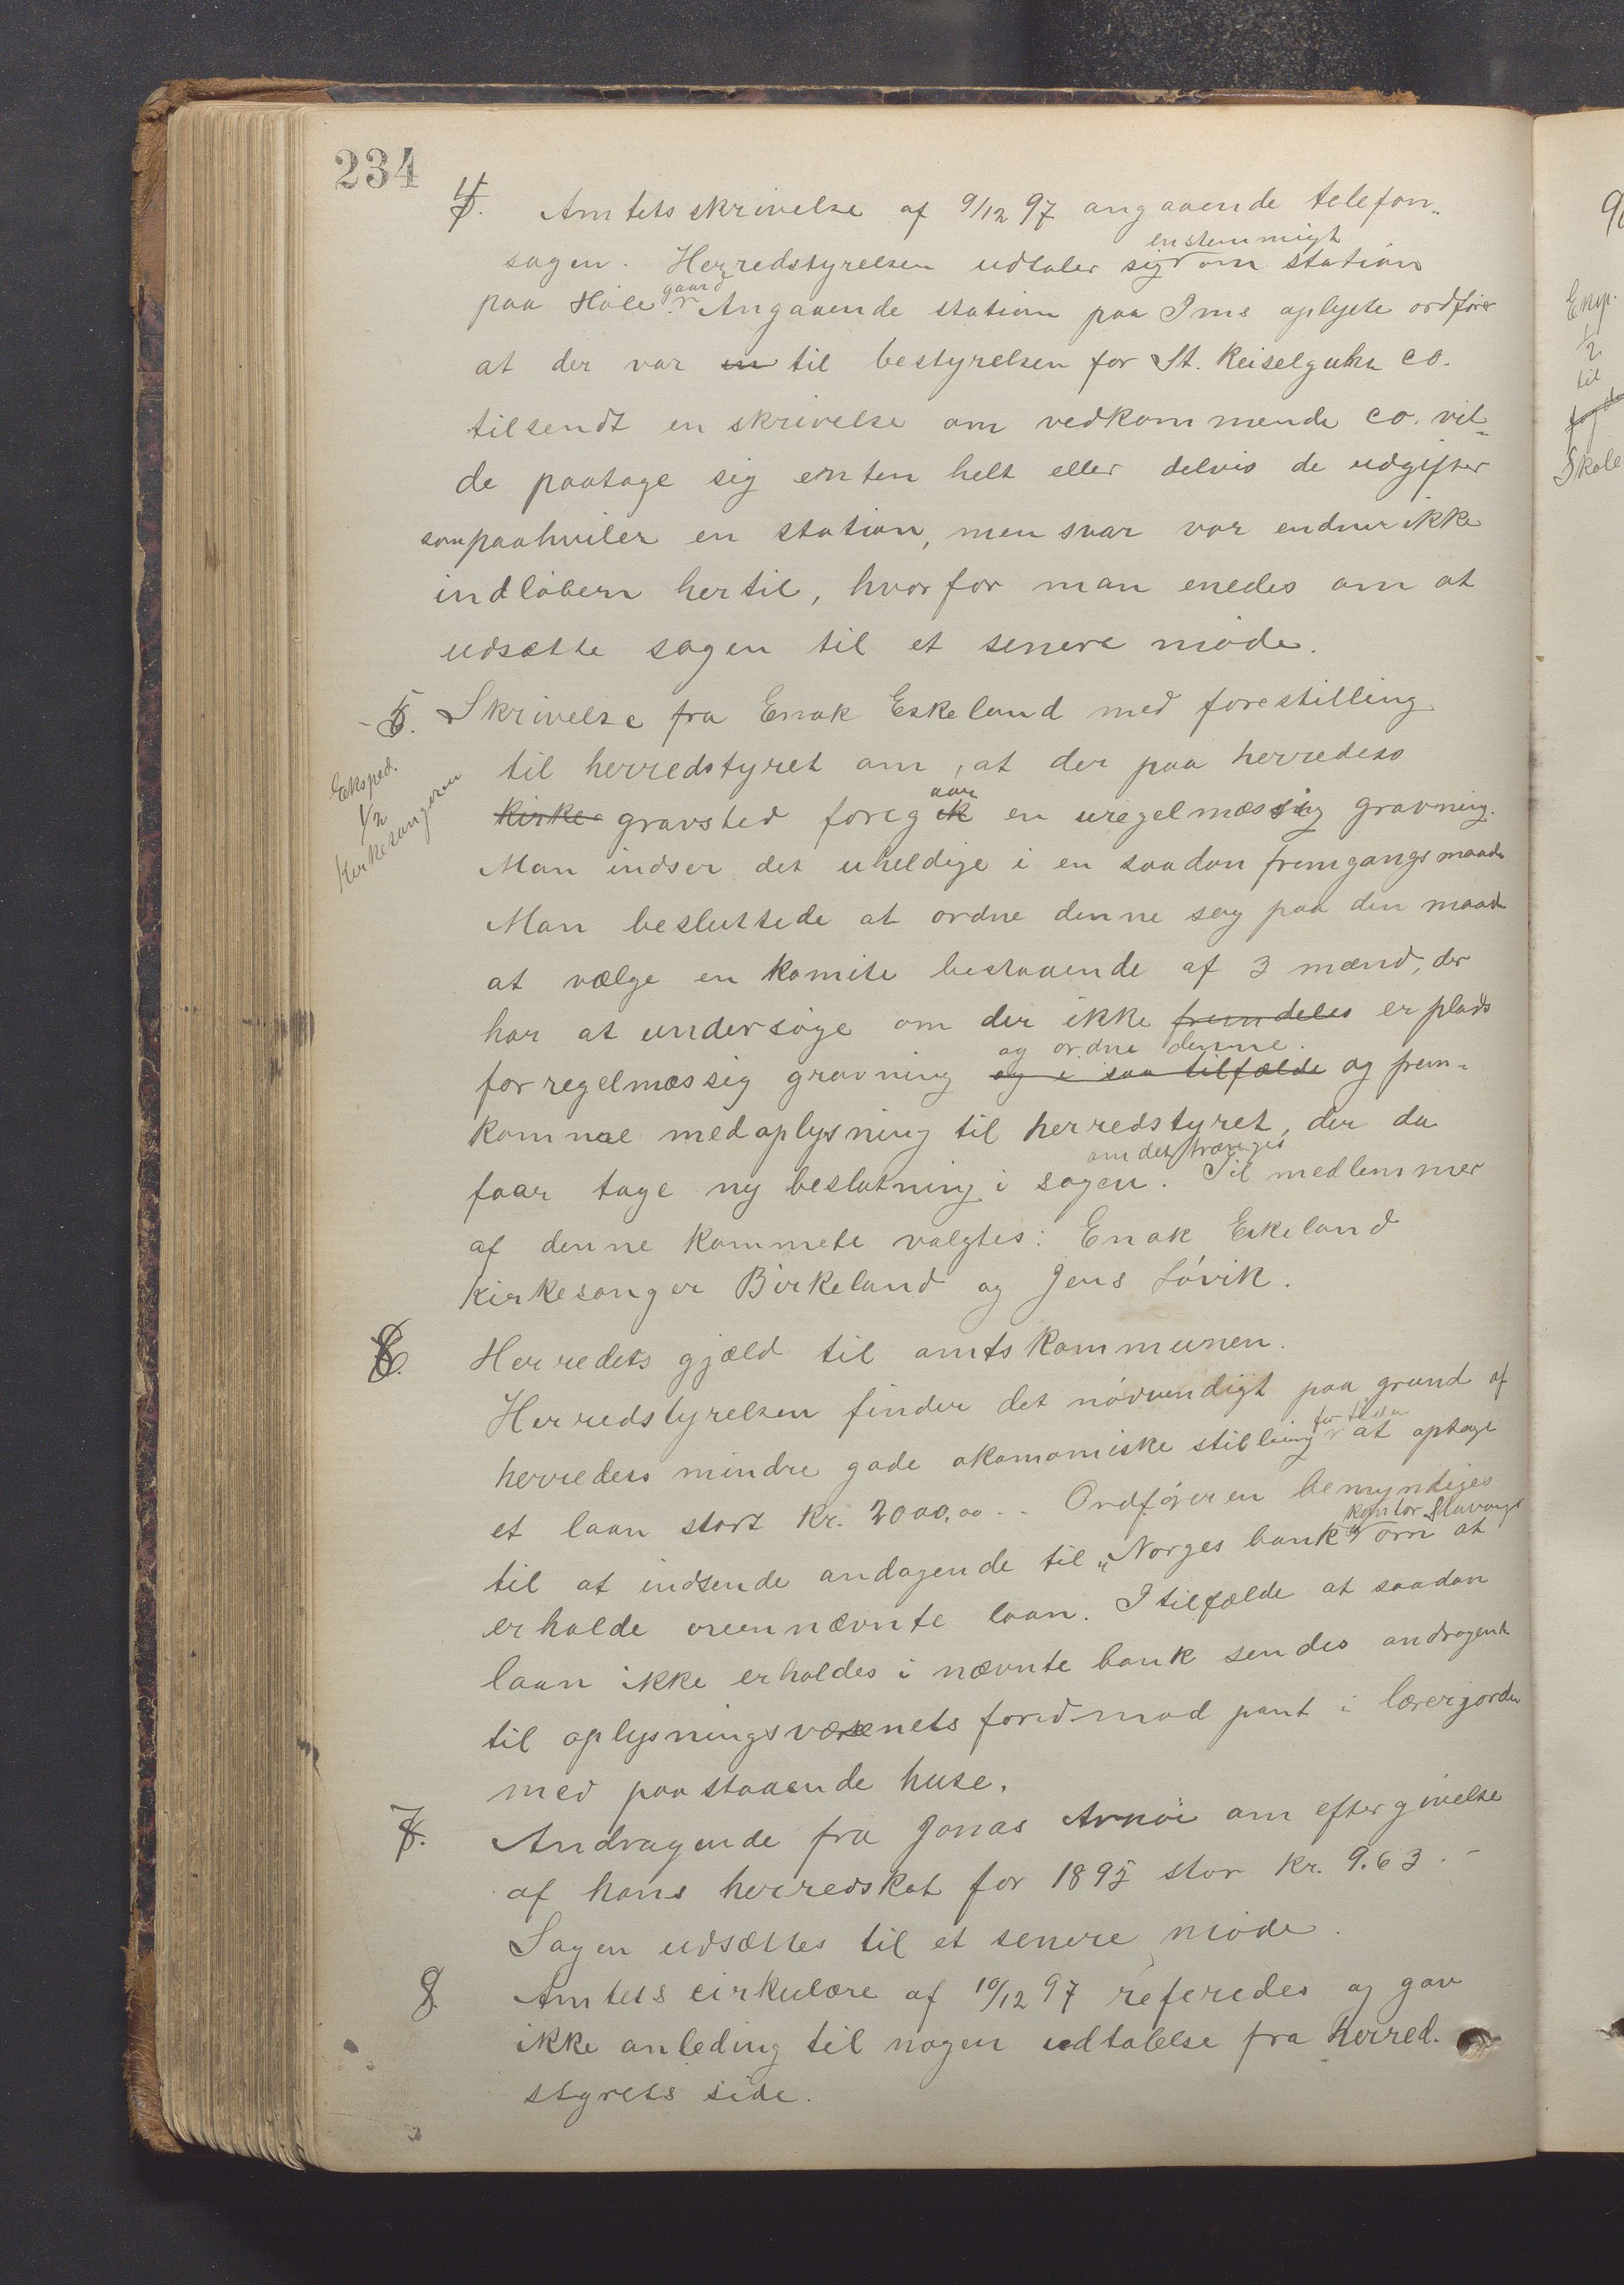 234
4. Amtets skrivelse af 9/12 97 angaaende telefon-
sagen. Herredstyrelsen udtaler sig enstemmigt om station
paa Höle gaard. Angaaende station paa Ims oplyste ordfører
at der var en til bestyrelsen for St. Keiselguhr co.
tilsendt en skrivelse om vedkommende co. vil-
de paatage sig enten helt eller delvis de udgifter
som paahviler en station, men svar var endnu ikke
indlöbern hertil, hvorfor man enedes om at
udsætte sagen til et senere möde.
5. Skrivelse fra Enok Eskeland med forestilling
til herredstyret om, at der paa herredets
kirke- gravsted foregik aar en uregelmæssig gravning.
Eksped. 1/2 Kirkesangeren
Man indser det uheldige i en saadan fremgangsmaade
Man besluttede at ordne denne sag paa den maade
at vælge en komite bestaaende af 3 mænd, der
har at undersöge om der ikke fremdeles er plads
for regelmæssig gravning og i saa tilfælde og ordne denne. og frem-
komme med oplysning til herredstyret, der da
faar tage ny beslutning i sagen om det trænges. Til medlemmer
af denne kommete valgtes: Enok Eskeland
Kirkesanger Birkeland og Jens Lövik.
6. Herredets gjæld til amtskommunen.
Herredstyrelsen finder det nödvendigt paa grund af
herredets mindre gode økonomiske stilling for tiden at optage
et laan stort Kr. 2000,00.. Ordføreren bemyndiges
til at indsende andagende til „Norges bank" kontor Stavanger om at
erholde ovennævnte laan. I tilfælde at saadan
laan ikke erholdes i nævnte bank sendes andragende
til oplysningsvæsenets fond mod pant i lærerjorden
med paastaaende huse.
7. Andragende fra Jonas Arnöi om eftergivelse
af hans herredskat for 1895 stor Kr. 9.63.-
Sagen udsættes til et senere möde.
8. Amtets cirkulære af 10/12 97 referedes og gav
ikke anleding til nogen udtalelse fra herred-
styrets side.
Exp.
1/2
til
Skole